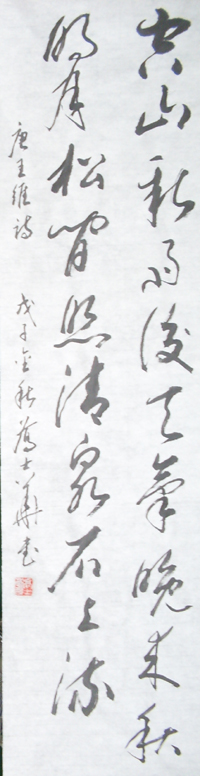 空山新雨後天氣晚來秋
明月松間照清泉石上流
唐王維詩 戊子金秋 士華書